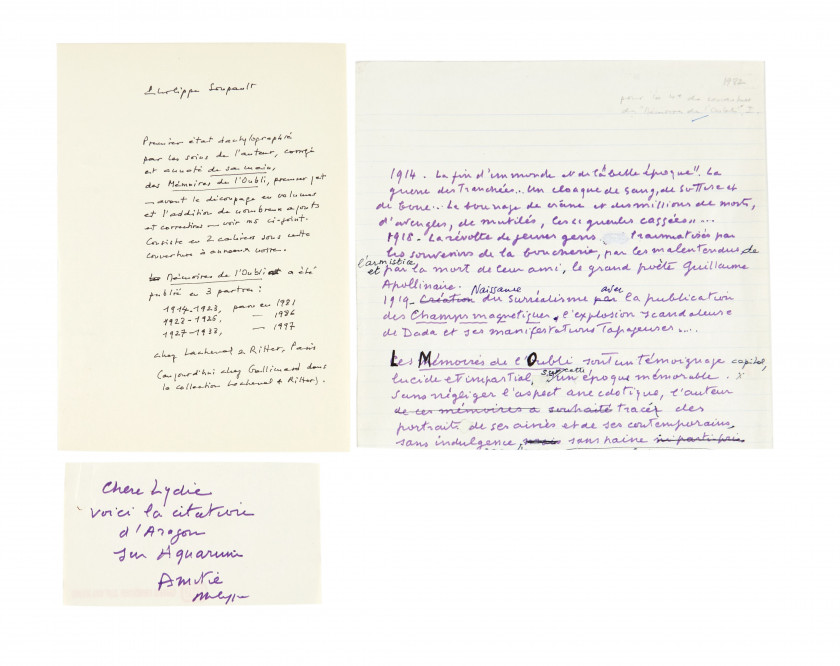 Philippe Soupault
Premier état dactylographié
par les soins de l'auteur, corrigé
et annoté de sa main,
des Mémoires de l'Oubli, premier jet
– avant le découpage en volumes
et l'addition de nombreux ajouts
et corrections – voir ms ci-joint.
Consiste en 2 cahiers sous cette
couverture à anneaux
Mémoires de l'Oubli a été
publié en 3 parties :
1914-1923, paru en 1981
1923-1926, — 1986
1927-1933, — 1997
chez Lachenal & Ritter, Paris
(aujourd'hui chez Gallimard dans
la collection Lachenal & Ritter).
1982
pour la
du "Mémoires de l'Oubli",
1914. La fin d'un monde et de la "belle époque". La
guerre des Tranchées. Un cloaque de sang, de sueur et
de boue. Le bourrage de crâne et des millions de morts,
d'aveugles, de mutilés, les "gueules cassées"....
1918. La révolte de jeunes gens traumatisés par
les souvenirs de la boucherie, par les malentendus de
l'armistice,
et par la mort de leur ami, le grand poète Guillaume
Apollinaire. Naissance avec
1919. Création du Surréalisme par la publication
des Champs magnétiques, l'explosion scandaleuse
de Dada et ses manifestations tapageuses....
Les Mémoires de l'Oubli sont un témoignage capital,
lucide et impartial, sur cette d'un époque mémorable.
Sans négliger l'aspect anecdotique, l'auteur
de ces mémoires a souhaité tracer des
portraits de ses aînés et de ses contemporains
sans indulgence, mais sans haine ni parti pris
Chère Lydie
voici la citation
d'Aragon
sur Aquarium
Amitié